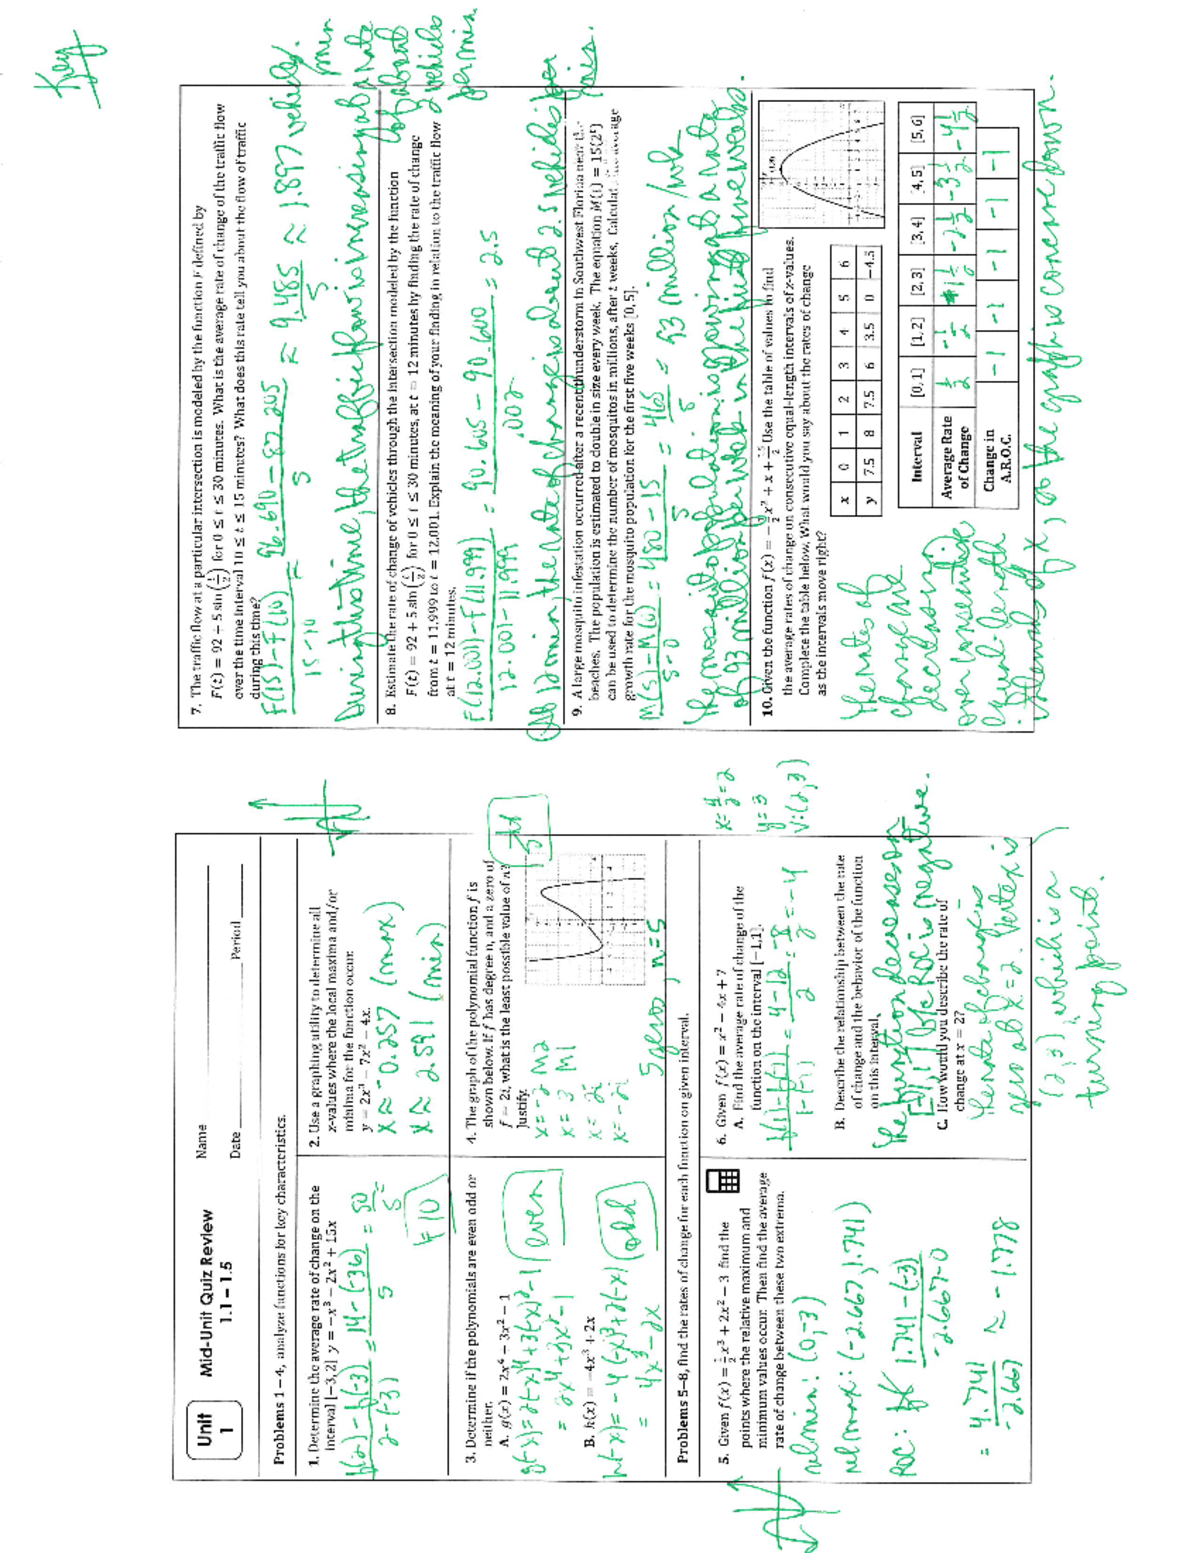 Key
Unit
1
Mid-Unit Quiz Review
1.1 – 1.5
Name
Date
Period
Problems 1–4, analyze functions for key characteristics.
1. Determine the average rate of change on the
interval [−3,2] y = −x³ − 2x² + 15x
f(2) − f(-3) = 14 − (-36) = 50 =
2−(-3) 5 5
10
2. Use a graphing utility to determine all
x-values where the local maxima and/or
minima for the function occur.
y = 2x³ − 7x² − 4x.
x ≈ -0.257 (max)
x ≈ 2.591 (min)
3. Determine if the polynomials are even odd or
neither.
A. g(x) = 2x⁴ + 3x² − 1
g(-x) = 2(-x)⁴ + 3(-x)² − 1 even
= 2x⁴ + 3x² − 1
B. h(x) = −4x³ + 2x
h(-x) = -4(-x)³ + 2(-x) odd
= 4x³ − 2x
4. The graph of the polynomial function f is
shown below. If f has degree n, and a zero of
f = 2i, what is the least possible value of n?
Justify.
x = -2 m2
x = 3 m1
x = 2i
x = -2i
5 zeros, n = 5
Problems 5–8, find the rates of change for each function on given interval.
5. Given f(x) = ½x³ + 2x² − 3 find the
points where the relative maximum and
minimum values occur. Then find the average
rate of change between these two extrema.
rel min: (0,-3)
rel max: (-2.667, 1.741)
ROC: 1.741 − (-3)
-2.667−0
= 4.741 ≈ -1.778
-2.667
6. Given f(x) = x² − 4x + 7
A. Find the average rate of change of the
function on the interval [−1,1].
f(1) − f(-1) = 4 − 12 = -8 = -4
1−(-1) 2 2
x = 4/2 = 2
y = 3
V: (2,3)
B. Describe the relationship between the rate
of change and the behavior of the function
on this interval.
The function decreases on
[-1,1] b/c ROC is negative.
C. How would you describe the rate of
change at x = 2?
the rate of change is
zero at x = 2. Vertex is
(2,3), which is a
turning point.
7. The traffic flow at a particular intersection is modeled by the function F defined by
F(t) = 92 + 5 sin(t/2) for 0 ≤ t ≤ 30 minutes. What is the average rate of change of the traffic flow
over the time interval 10 ≤ t ≤ 15 minutes? What does this rate tell you about the flow of traffic
during this time?
F(15) − F(10) = 96.690 − 87.205 = 9.485 ≈ 1.897 vehicles
15−10 5 5 min
During this time, the traffic flow is increasing at a rate
of about
2 vehicles
per min.
8. Estimate the rate of change of vehicles through the intersection modeled by the function
F(t) = 92 + 5 sin(t/2) for 0 ≤ t ≤ 30 minutes, at t = 12 minutes by finding the rate of change
from t = 11.999 to t = 12.001. Explain the meaning of your finding in relation to the traffic flow
at t = 12 minutes.
F(12.001) − F(11.999) = 90.605 − 90.600 = 2.5
12.001 − 11.999 .002
At 12 min, the rate of change is about 2.5 vehicles per
min.
9. A large mosquito infestation occurred after a recent thunderstorm in Southwest Florida near the
beaches. The population is estimated to double in size every week. The equation M(t) = 15(2ᵗ)
can be used to determine the number of mosquitos in millions, after t weeks. Calculate the average
growth rate for the mosquito population for the first five weeks [0,5].
M(5) − M(0) = 480 − 15 = 465 = 93 million/wk
5−0 5 5
The mosquito population is growing at a rate
of 93 million per week in the first five weeks.
10. Given the function f(x) = −½x² + x + 15/2 Use the table of values to find
the average rates of change on consecutive equal-length intervals of x-values.
Complete the table below. What would you say about the rates of change
as the intervals move right?
x 0 1 2 3 4 5 6
y 7.5 8 7.5 6 3.5 0 −4.5
Interval [0,1] [1,2] [2,3] [3,4] [4,5] [5,6]
Average Rate of Change ½ -½ -1½ -2½ -3½ -4½
Change in A.R.O.C. -1 -1 -1 -1 -1
The rates of
change are
decreasing
over consecutive
equal-length
intervals of x, so the graph is concave down.